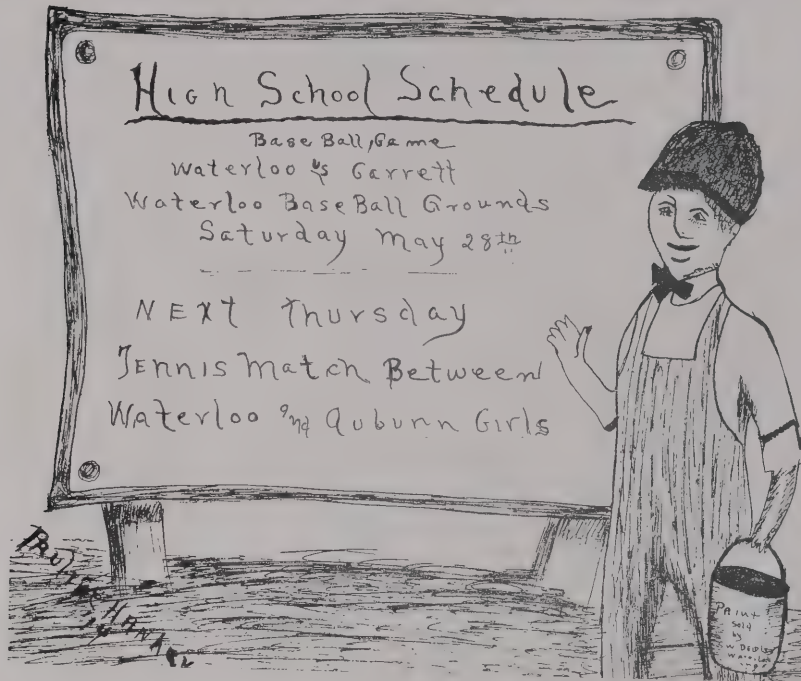 High School Schedule
Base Ball, Game
Waterloo vs Garrett
Waterloo Base Ball Grounds
Saturday May 28th
NEXt Thursday
Tennis Match Between
Waterloo and Auburn Girls
Paint
Sold
by